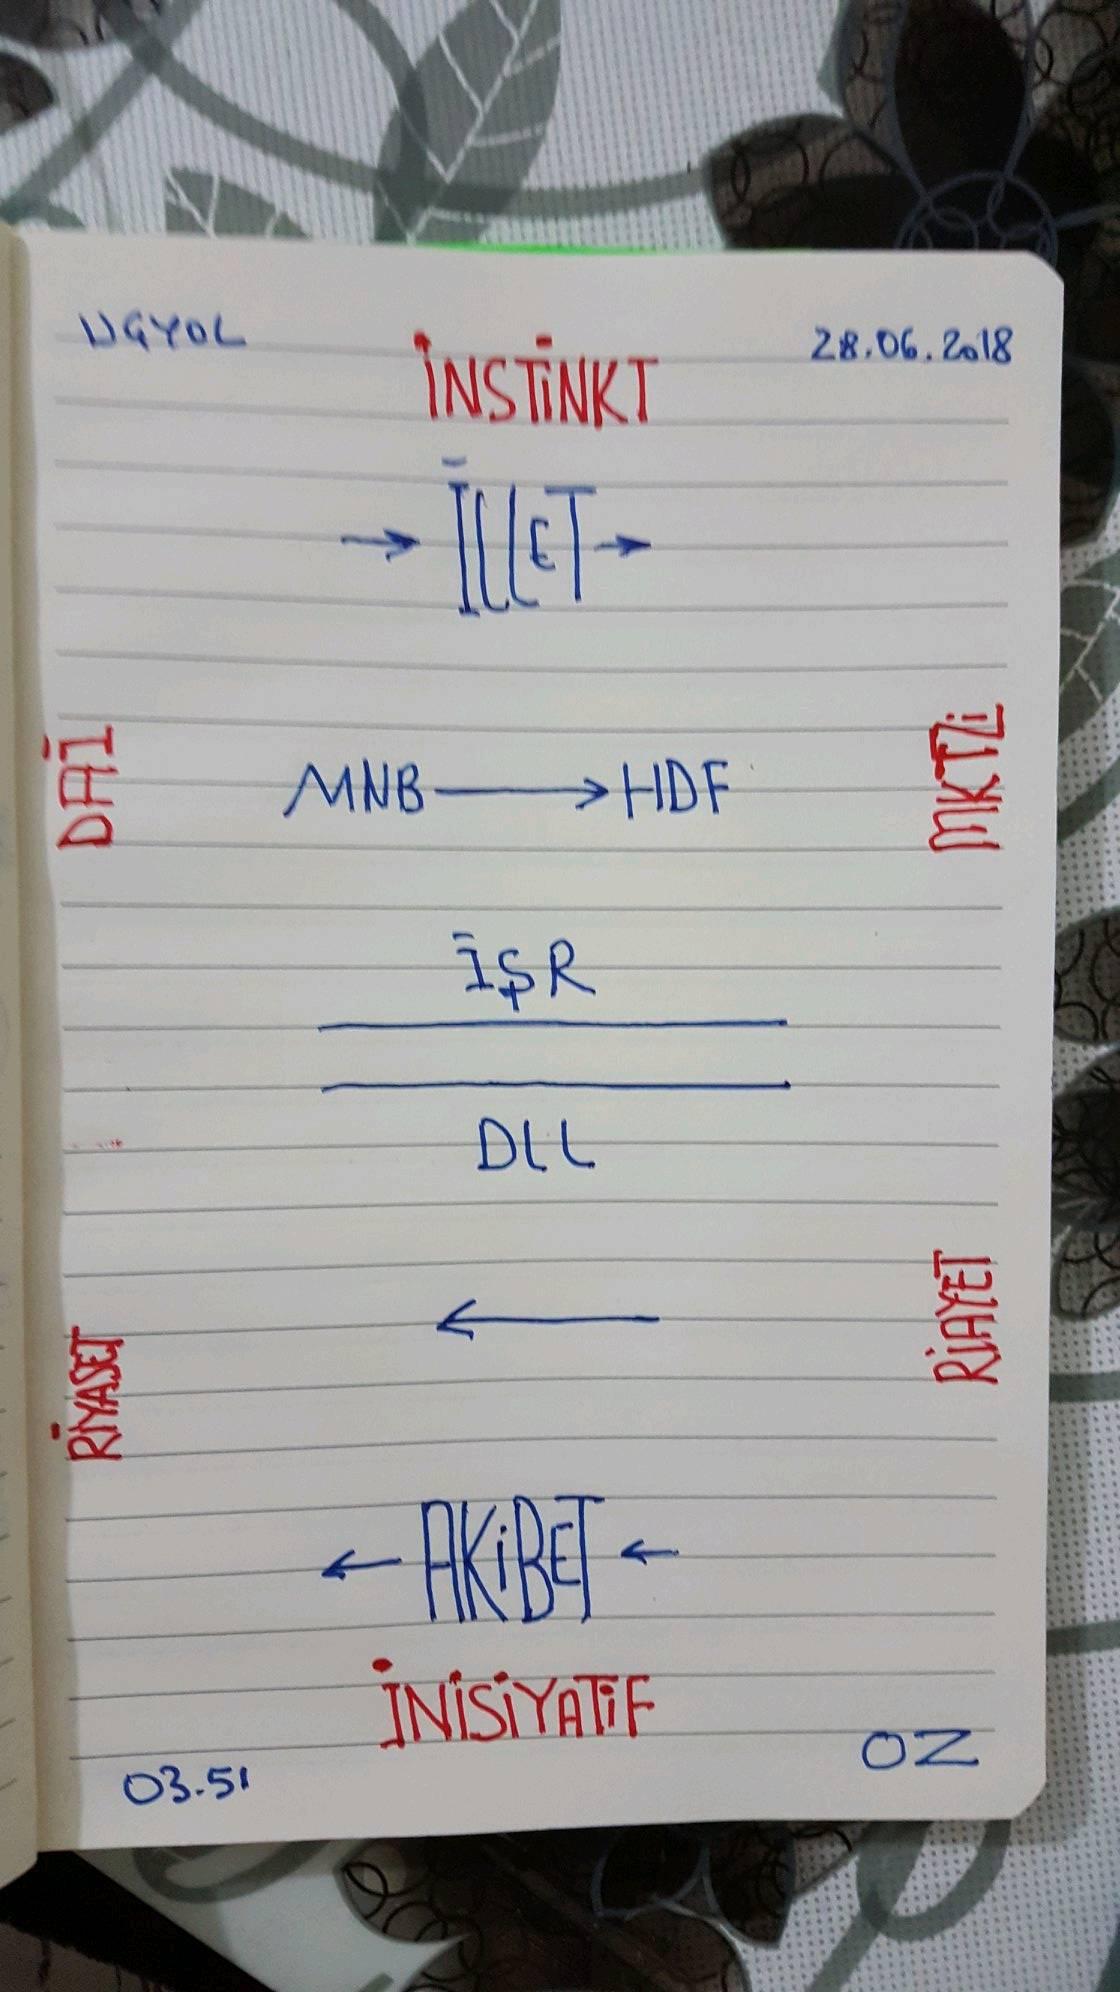 UGYOL
28.06.2018
İNSTİNKT
→ İLLET →
DAİ
MNB → HDF
MKTZİ
İŞR
DLL
←
RİYASET
RİAYET
← AKİBET ←
İNİSİYATİF
03.51
OZ